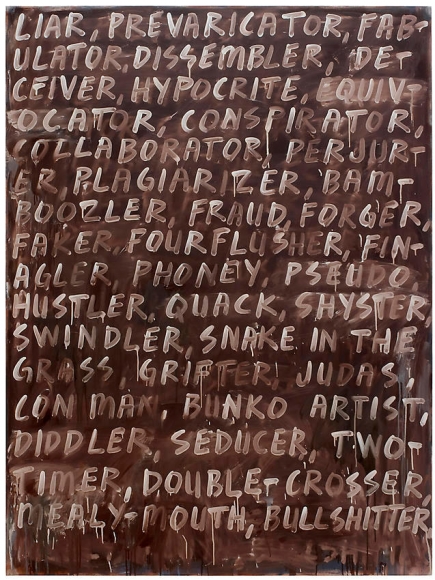 LIAR, PREVARICATOR, FAB-
ULATOR, DISSEMBLER, DE-
CEIVER, HYPOCRITE, EQUIV-
OCATOR, CONSPIRATOR,
COLLABORATOR, PERJUR-
ER, PLAGIARIZER, BAM-
BOOZLER, FRAUD, FORGER,
FAKER, FOURFLUSHER, FIN-
AGLER, PHONEY, PSEUDO,
HUSTLER, QUACK, SHYSTER,
SWINDLER, SNAKE IN THE
GRASS, GRIFTER, JUDAS,
CON MAN, BUNKO ARTIST,
DIDDLER, SEDUCER, TWO-
TIMER, DOUBLE-CROSSER,
MEALY-MOUTH, BULLSHITTER